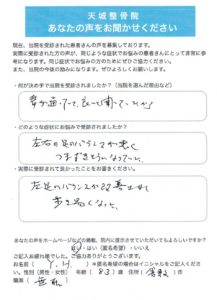 天城整骨院
あなたの声をお聞かせください
現在、当院を受診された患者さんの声を募集しております。
実際に受診された方の声が、同じような症状でお悩みの患者さんにとって非常に参考になります。同じ症状でお悩みの方のためにぜひご協力ください。
また、当院の今後の励みになります。ぜひよろしくお願いします。
・何が決め手で当院を受診されましたか?
・どのような症状にお悩みで受診されましたか?
左右の足のバランスが悪く
つまずきそうになって
・実際に受診されて良かったことをお書きください。
左足のバランスが改善されて
歩き易くなった。
あなたの声をホームページなどの掲載、院内に提示させていただいてもよろしいですか?
はい(匿名希望)・いいえ
ご記入お疲れ様でした。ご協力ありがとうございます。
お名前( Y.H. )※匿名希望の場合はイニシャルをご記入ください。性別(男性・女性) 年齢( 83 )歳 住所( 市)
職業( 無職 )